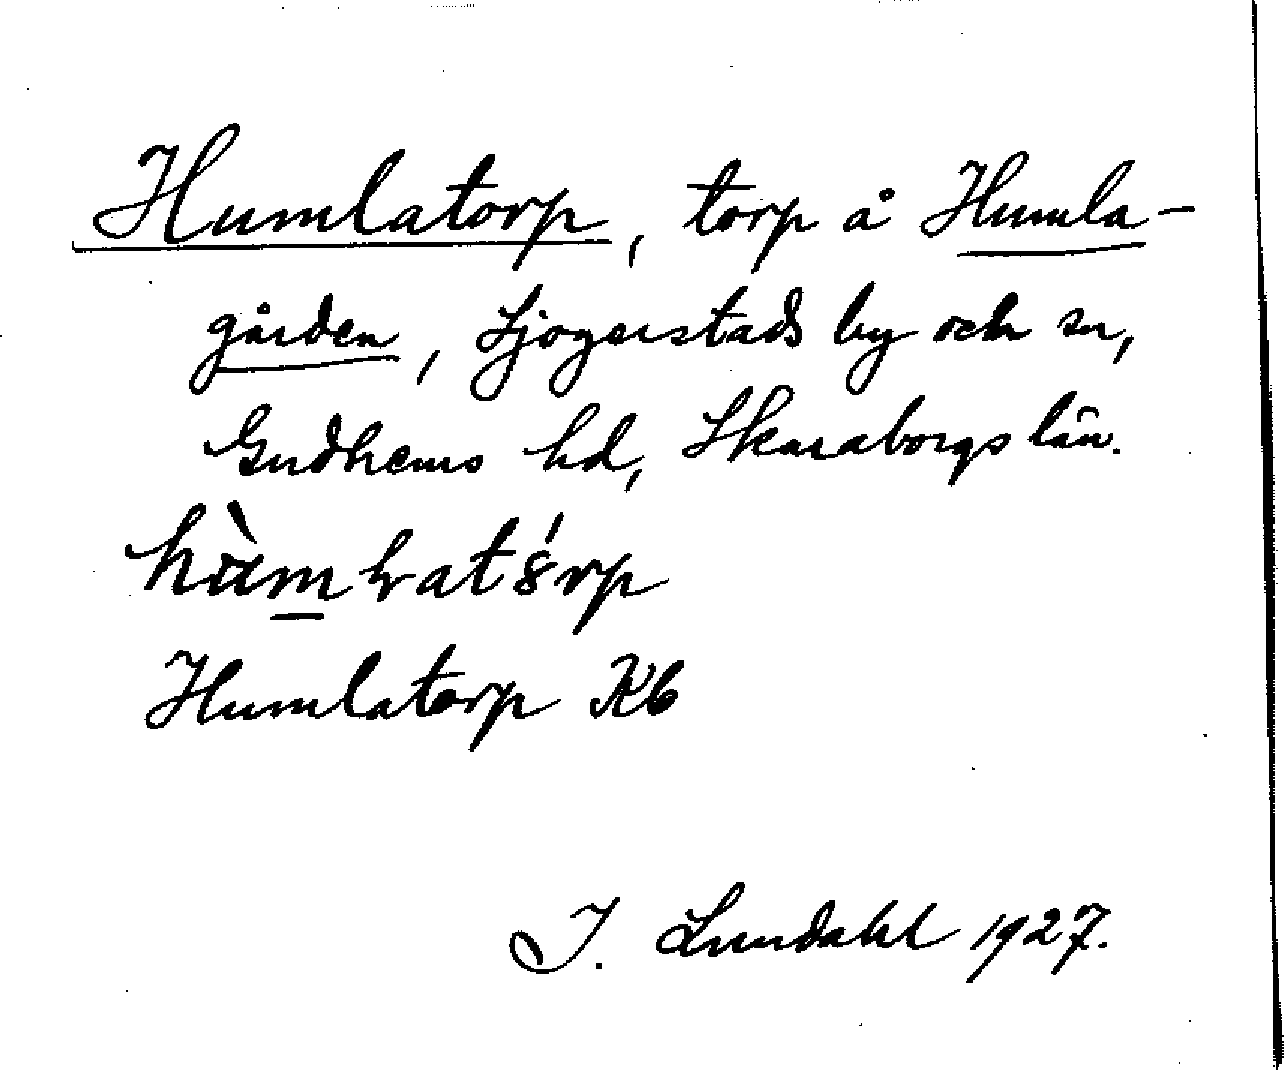 Humlatorp, torp å Humla-
gården, Sjogerstads by och sn,
Gudhems hd, Skaraborgs län.
Humlatorp Kb
I. Lundahl 1927.